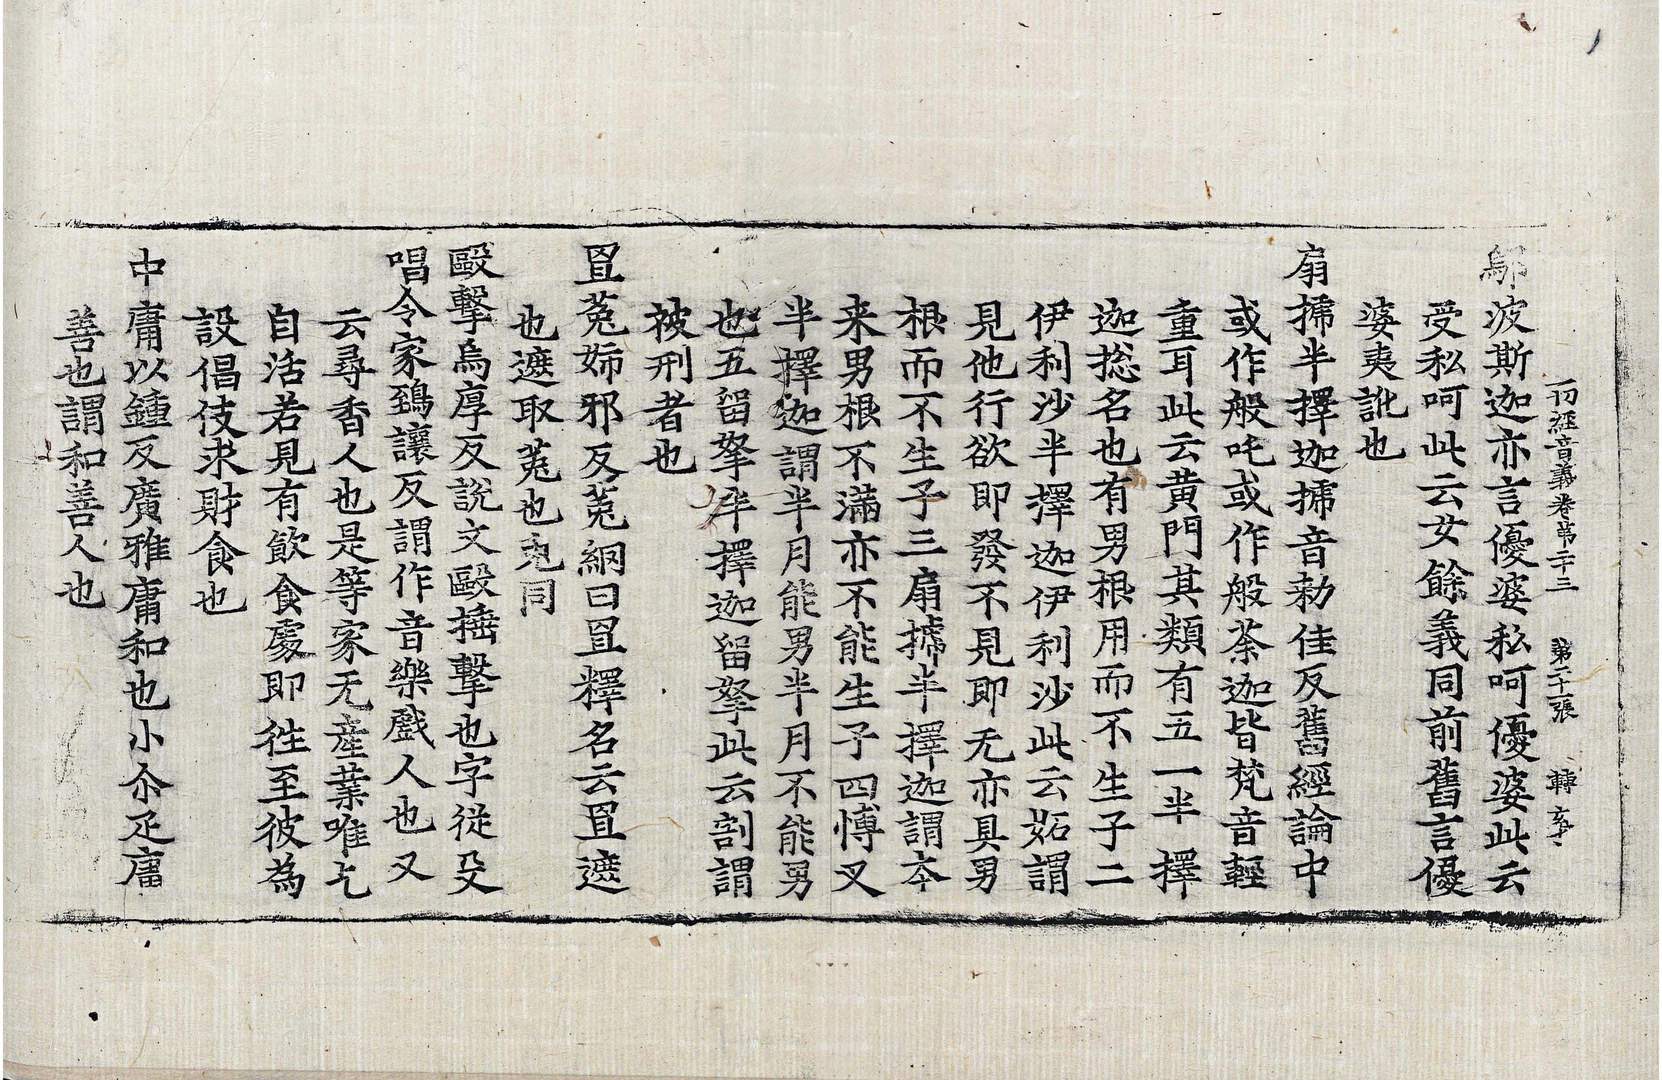 一切經音義卷第二十三 第二十一張 轉 亥
鄔波斯迦亦言優婆私呵優婆此云
受私呵此云女餘義同前舊言優
婆夷訛也
扇搋半擇迦搋音勑佳反舊經論中
或作般吒或作般荼迦皆梵音輕
重耳此云黄門其類有五一半擇
迦捴名也有男根用而不生子二
伊利沙半擇迦伊利沙此云妬謂
見他行欲即發不見即无亦具男
根而不生子三扇搋半擇迦謂本
来男根不滿亦不能生子四愽叉
半擇迦謂半月能男半月不能男
也五留拏半擇迦留拏此云割謂
被刑者也
罝菟姉邪反菟網曰罝釋名云罝遮
也遮取菟也兔同
毆擊烏厚反說文毆捶擊也字従殳
唱令家鵄讓反謂作音樂戲人也又
云尋香人也是等家无産業唯乞
自活若見有飲食處即徃至彼為
設倡伎求財食也
中庸以鍾反廣雅庸和也小尒疋庸
善也謂和善人也